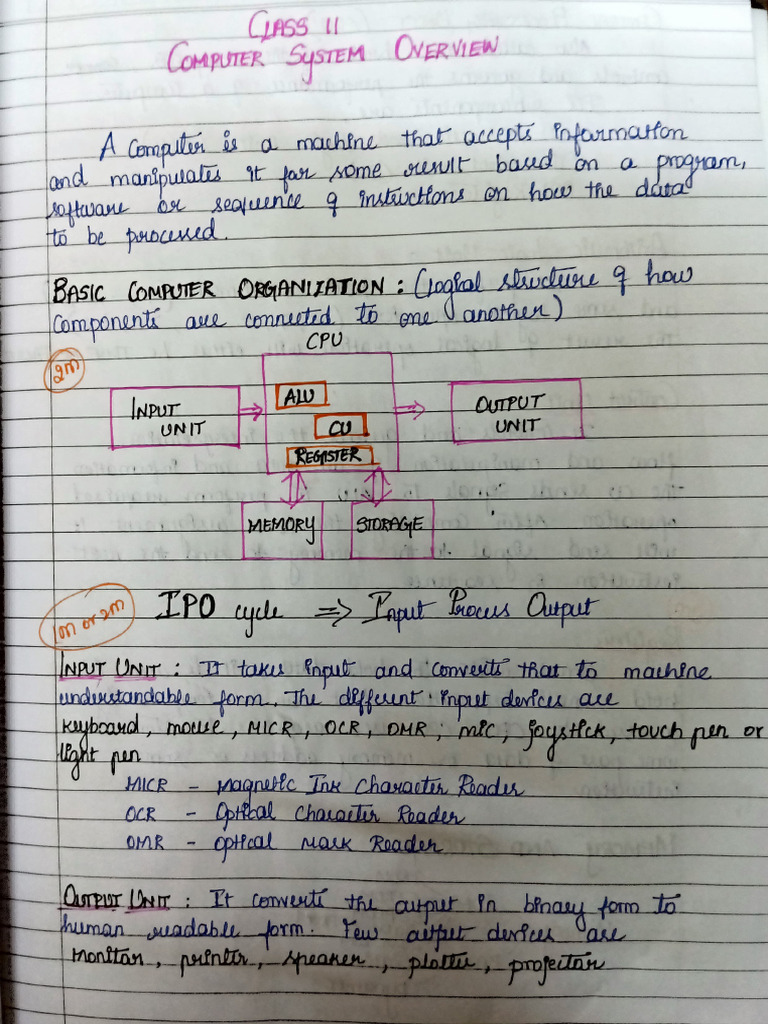 CLASS 11
COMPUTER SYSTEM OVERVIEW
A computer is a machine that accepts information
and manipulates it for some result based on a program,
software or sequence of instructions on how the data
to be processed.
BASIC COMPUTER ORGANIZATION : (logical structure of how
components are connected to one another)
CPU
2m
INPUT UNIT
ALU
CU
REGISTER
OUTPUT UNIT
MEMORY
STORAGE
1m or 2m
IPO cycle ⇒ Input Process Output
INPUT UNIT : It takes input and converts that to machine
understandable form. The different input devices are
keyboard, mouse, MICR, OCR, OMR, mic, joystick, touch pen or
light pen
MICR - Magnetic Ink Character Reader
OCR - Optical Character Reader
OMR - Optical Mark Reader
OUTPUT UNIT : It converts the output in binary form to
human readable form. Few output devices are
monitor, printer, speaker, plotter, projector